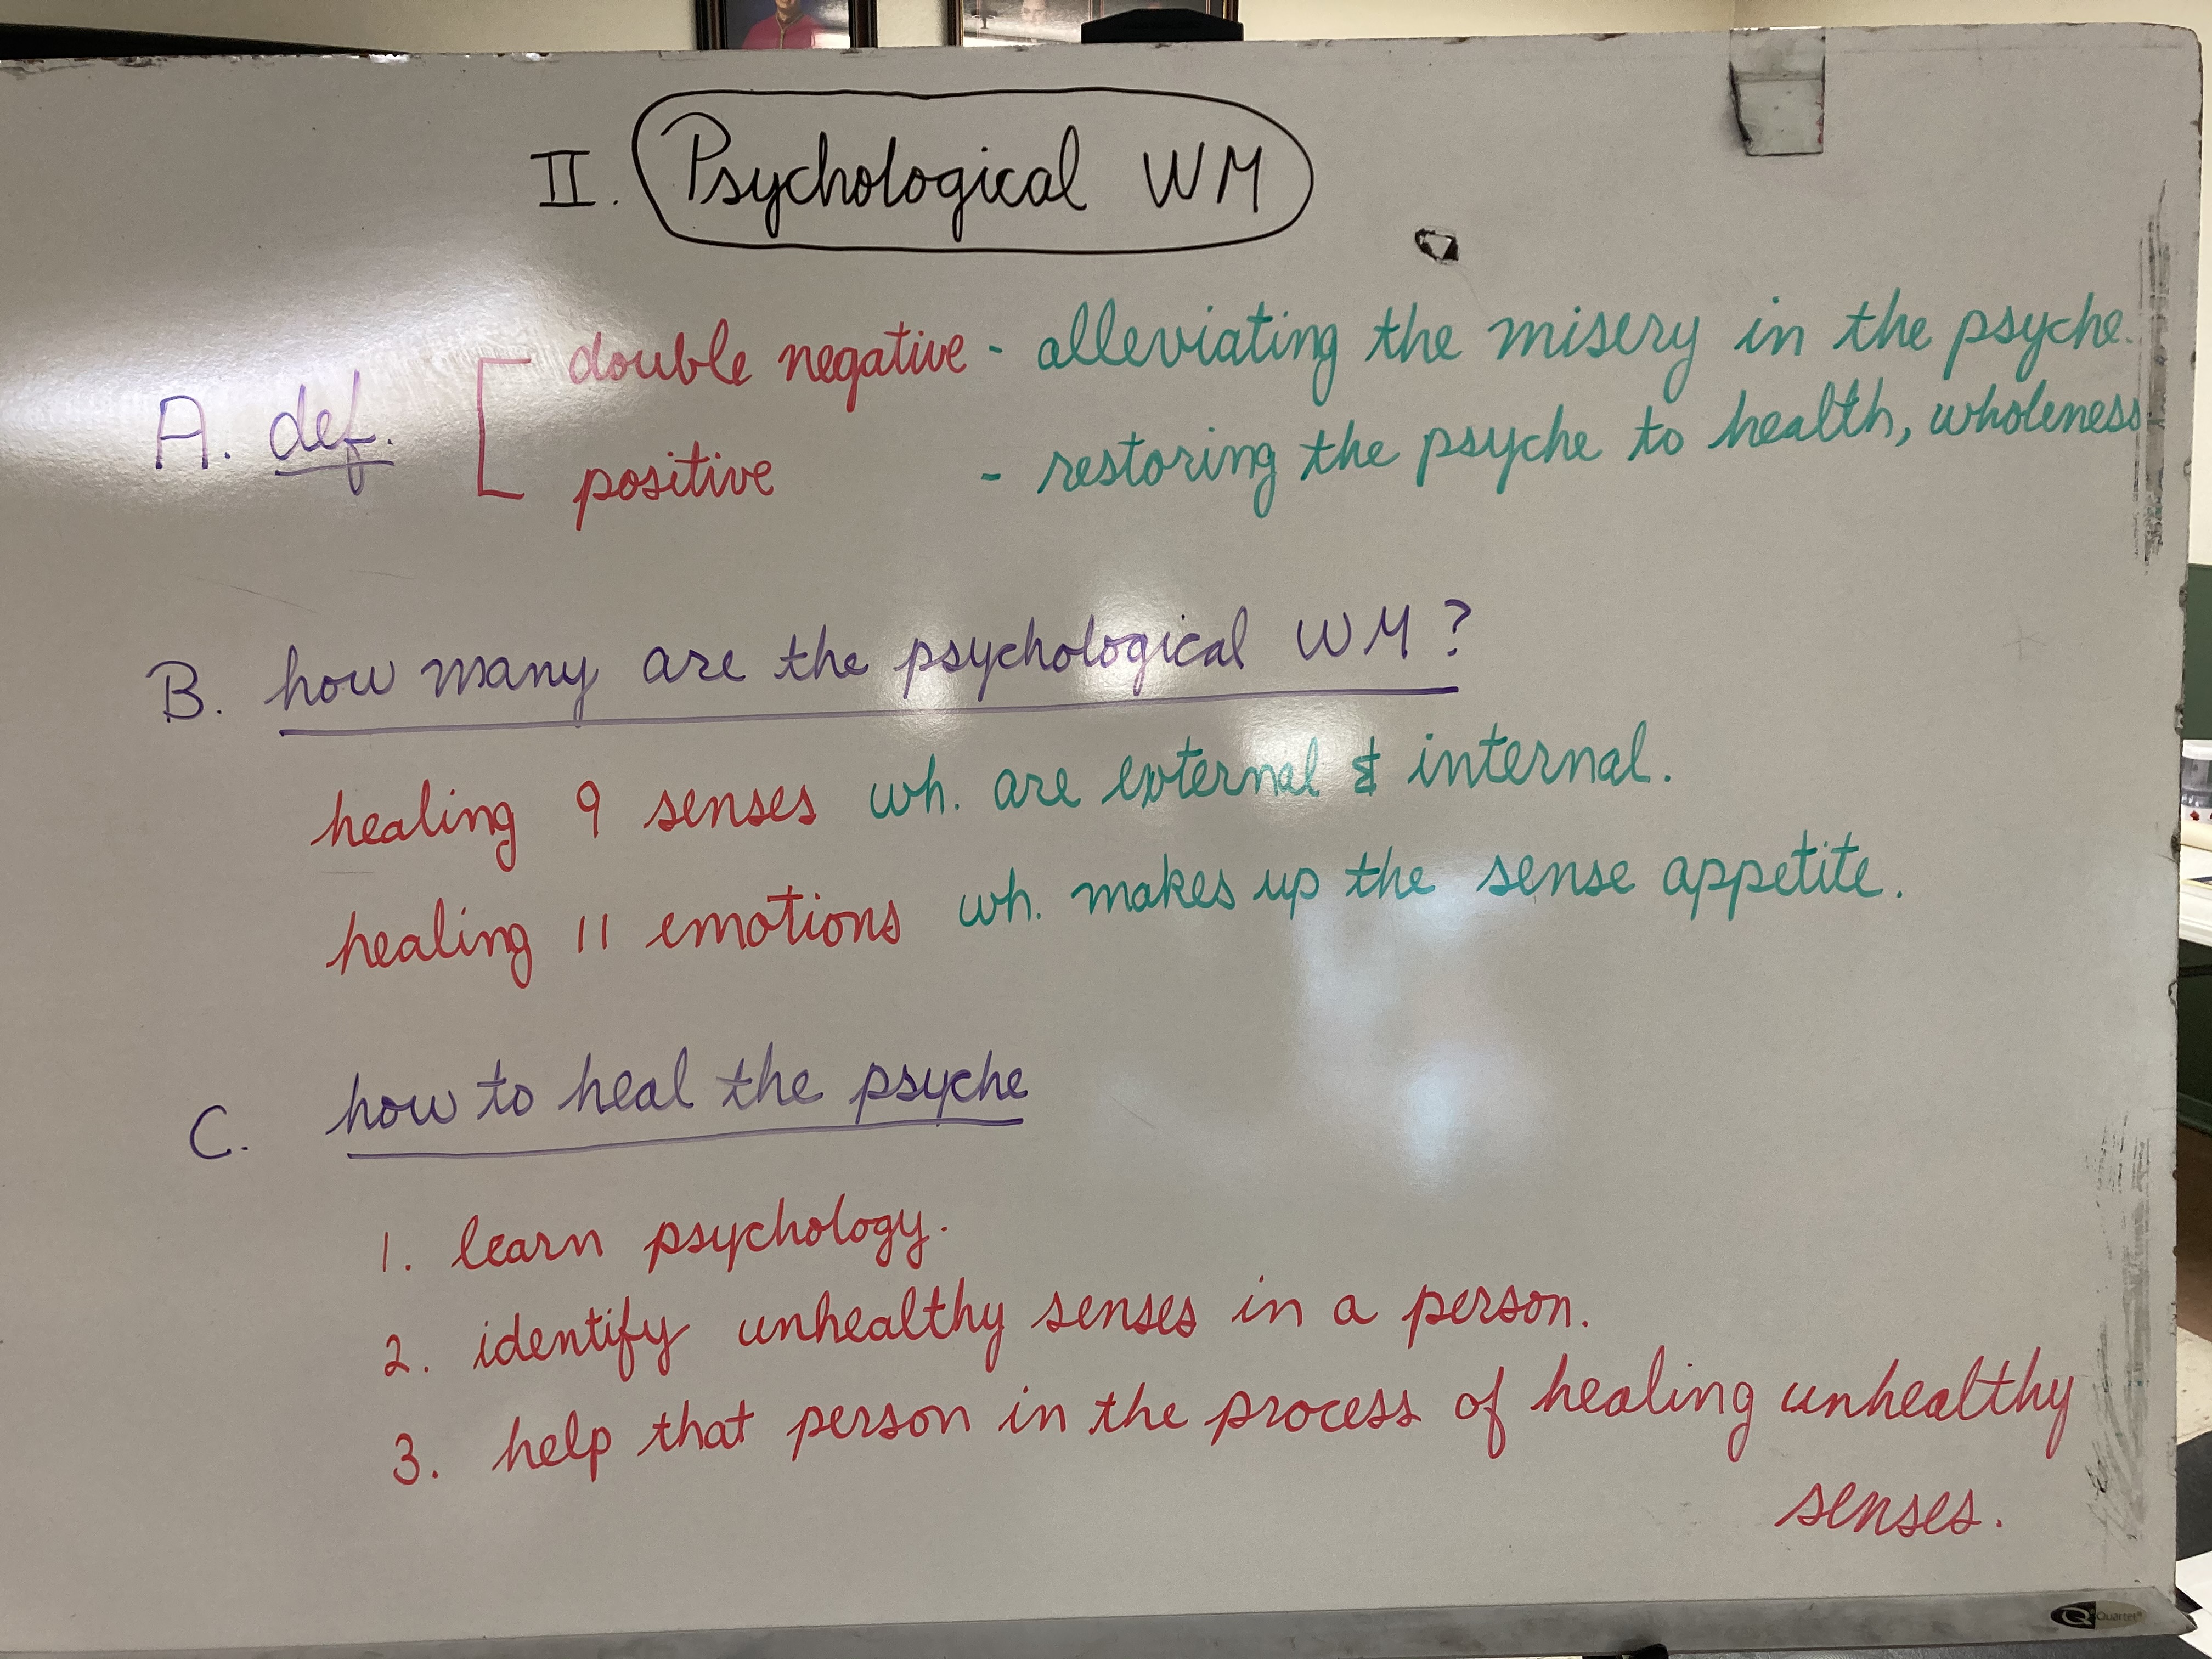 II. Psychological WM
A. def. double negative - alleviating the misery in the psyche.
positive - restoring the psyche to health, wholeness
B. how many are the psychological WM?
healing 9 senses wh. are external & internal.
healing 11 emotions wh. makes up the sense appetite.
C. how to heal the psyche
1. learn psychology.
2. identify unhealthy senses in a person.
3. help that person in the process of healing unhealthy
senses.
Quartet